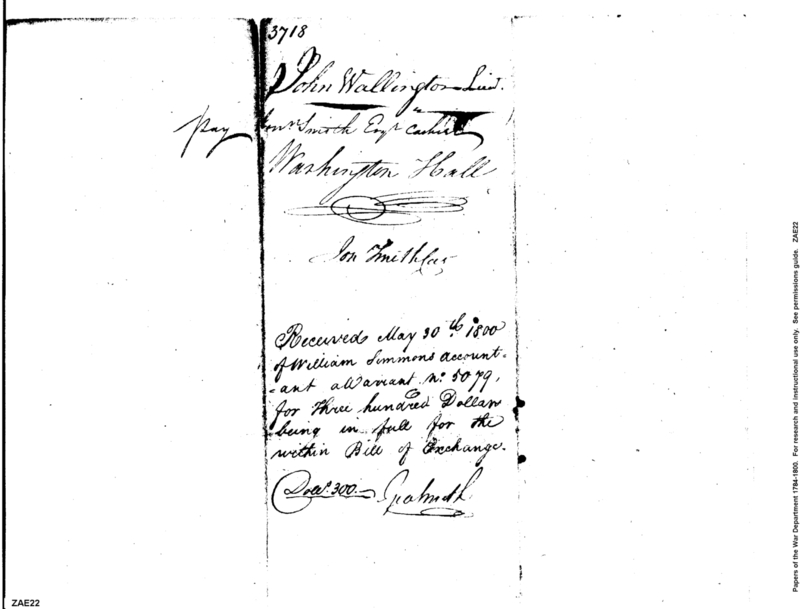 3718
John Wallington Lieu.
Pay Jonn. Smith Esqr. Cashier
Washington Hall
Jon Smith Cas
Received May 30th. 1800
of William Simmons account-
-ant a Warrant no. 5079,
for three hundred Dollars
being in full for the
within Bill of Exchange.
Dolls. 300.
ZAE22
Papers of the War Department 1784-1800. For research and instructional use only. See permissions guide. ZAE22